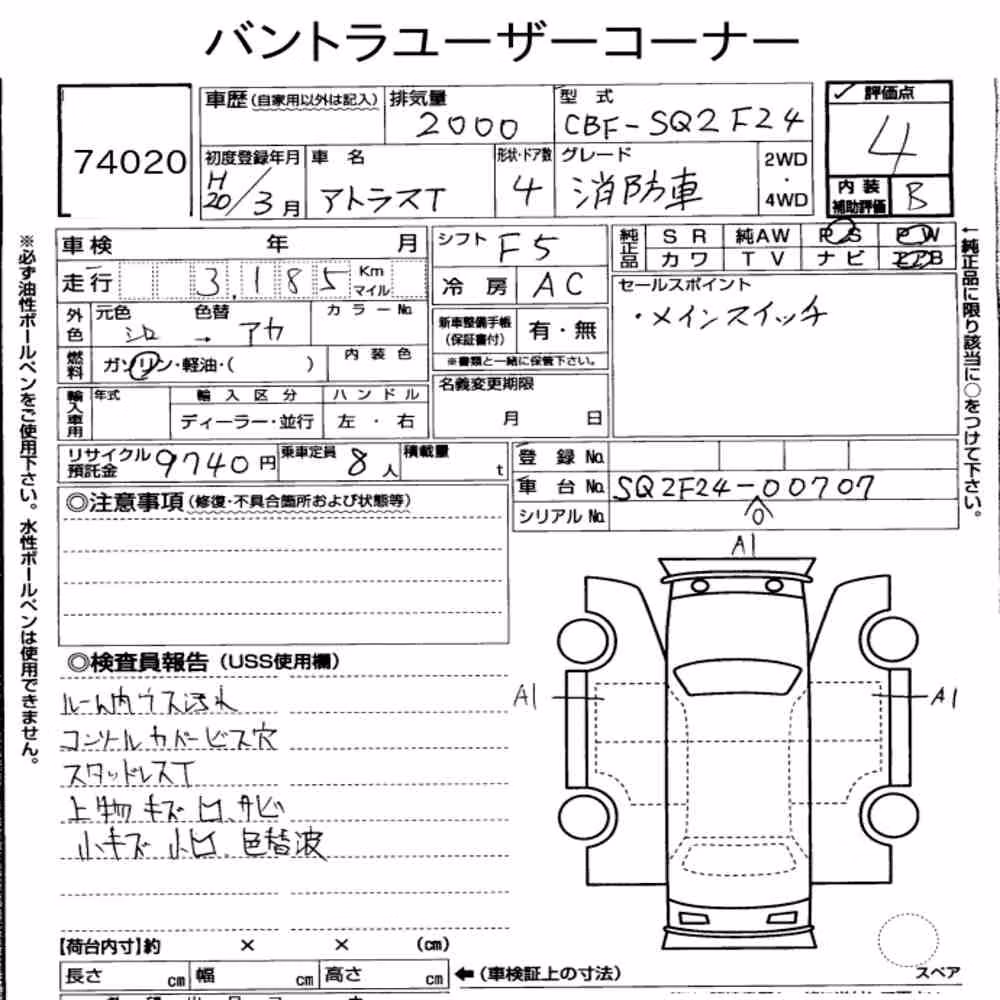 バントラユーザーコーナー
74020
車歴 (自家用以外は記入)
排気量
2000
型式
CBF-SQ2F24
評価点
4
初度登録年月
H20/3月
車名
アトラスT
形状・ドア数
4
グレード
消防車
2WD
・
4WD
内装
補助評価
B
車検 年 月
シフト F5
純正品
SR 純AW PS PW
カワ TV ナビ エアB
走行 3,185 Km
マイル
冷房 AC
セールスポイント
・メインスイッチ
外色
元色 色替 カラーNo.
シロ → アカ
新車整備手帳
(保証書付)
有・無
※書類と一緒に保管下さい。
燃料
ガソリン・軽油・( )
内装色
名義変更期限
月 日
輸入車用
年式
輸入区分
ハンドル
ディーラー・並行
左・右
リサイクル
預託金
9740円
乗車定員
8人
積載量
t
登録No.
車台No. SQ2F24-00707
0
シリアルNo.
◎注意事項(修復・不具合箇所および状態等)
◎検査員報告(USS使用欄)
ルーム内ウス汚れ
コンソールカバービス穴
スタッドレスT
上物キズ凹、サビ
小キズ小凹、色替波
A1
A1
A1
【荷台内寸】約 × × (cm)
長さ cm 幅 cm 高さ cm
←(車検証上の寸法)
スペア
※必ず油性ボールペンをご使用下さい。水性ボールペンは使用できません。
←純正品に限り該当に○をつけて下さい。